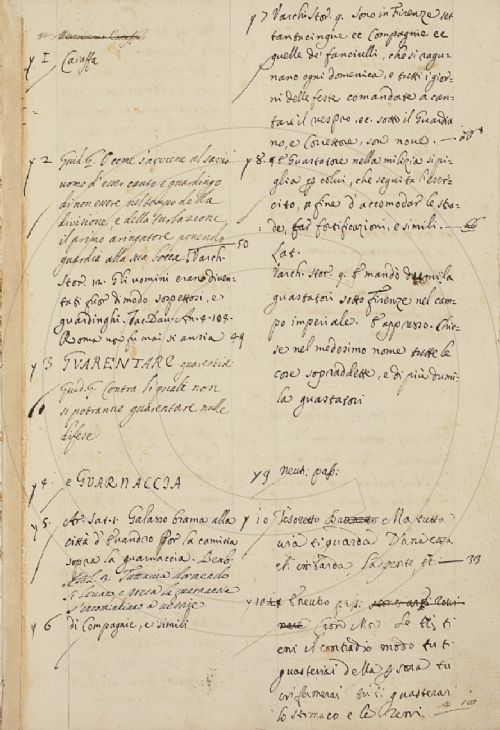 y 1 Caraffa
y 2 Guid. G. O come s'avviene al savio
uomo d'esser cauto e guardingo
di non essere nel tempo della
divisione e della turbazione
il primo aringatore ponendo
guardia alla sua bocca. Varch.
50
Stor. 12. Gli uomini erano diven-
tati fuor di modo sospettosi, e
guardinghi. Tac. Dav. An. 4. 104.
Roma non fu mai sì ansia
49
y 3 GUARENTARE guarentire
Guid. G. Contra li quali non
si potranno guarentare nulle
difese
y 4. e GUARNACCIA
y 5. Ar. Sat. 1. Galasso brama alla
città d'Evandro per la camicia
sopra la guarnaccia. Bemb.
Tuttavia dormendo
si levano e presa la guarnaccia
y 6 di Compagnie, e simili
y 7 Varch. Stor. 9. Sono in Firenze set
tantacinque ec Compagnie ec
quelle de' fanciulli, che si ragu-
nano ogni domenica, e tutti i gior-
ni delle feste comandate a can-
tare il vespro, ec. sotto il Guardia
no, e Correttore, son nove.
y 8. Guastatore nella milizia si pi-
glia per colui, che seguita l'eser-
cito, a fine d'accomodar le stra-
de, far fortificazioni, e simili.
Lat.
Varch. Stor. 9. mandò dumila
guastatori sotto Firenze nel cam-
po imperiale. E appresso. Chie-
se nel medesimo nome tutte le
cose sopraddette, e di più dumi-
la guastatori
y 9 neutr. pass:
y 10 Tesoretto Ma tutta
ti guarda D'ira
La gente
33
y 10 E neutro pass:
Cron. Mor. Se
il contradio modo tu ti
guasterai della sera tu
infermerai guasterai
lo stomaco e le reni